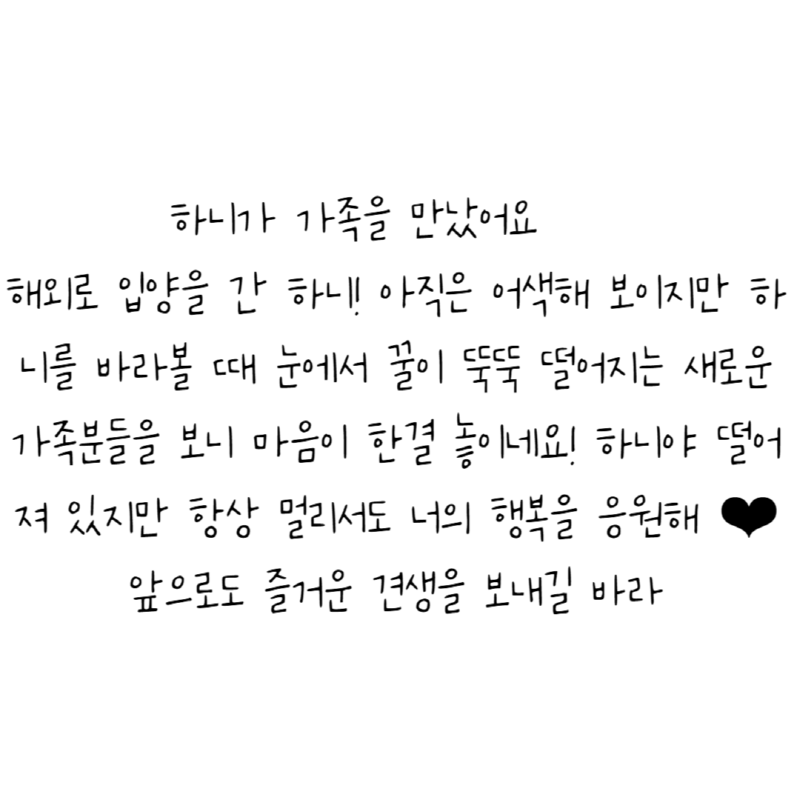 하니가 가족을 만났어요
해외로 입양을 간 하니! 아직은 어색해 보이지만 하
니를 바라볼 때 눈에서 꿀이 뚝뚝 떨어지는 새로운
가족분들을 보니 마음이 한결 놓이네요! 하니야 떨어
져 있지만 항상 멀리서도 너의 행복을 응원해 ♥
앞으로도 즐거운 견생을 보내길 바라